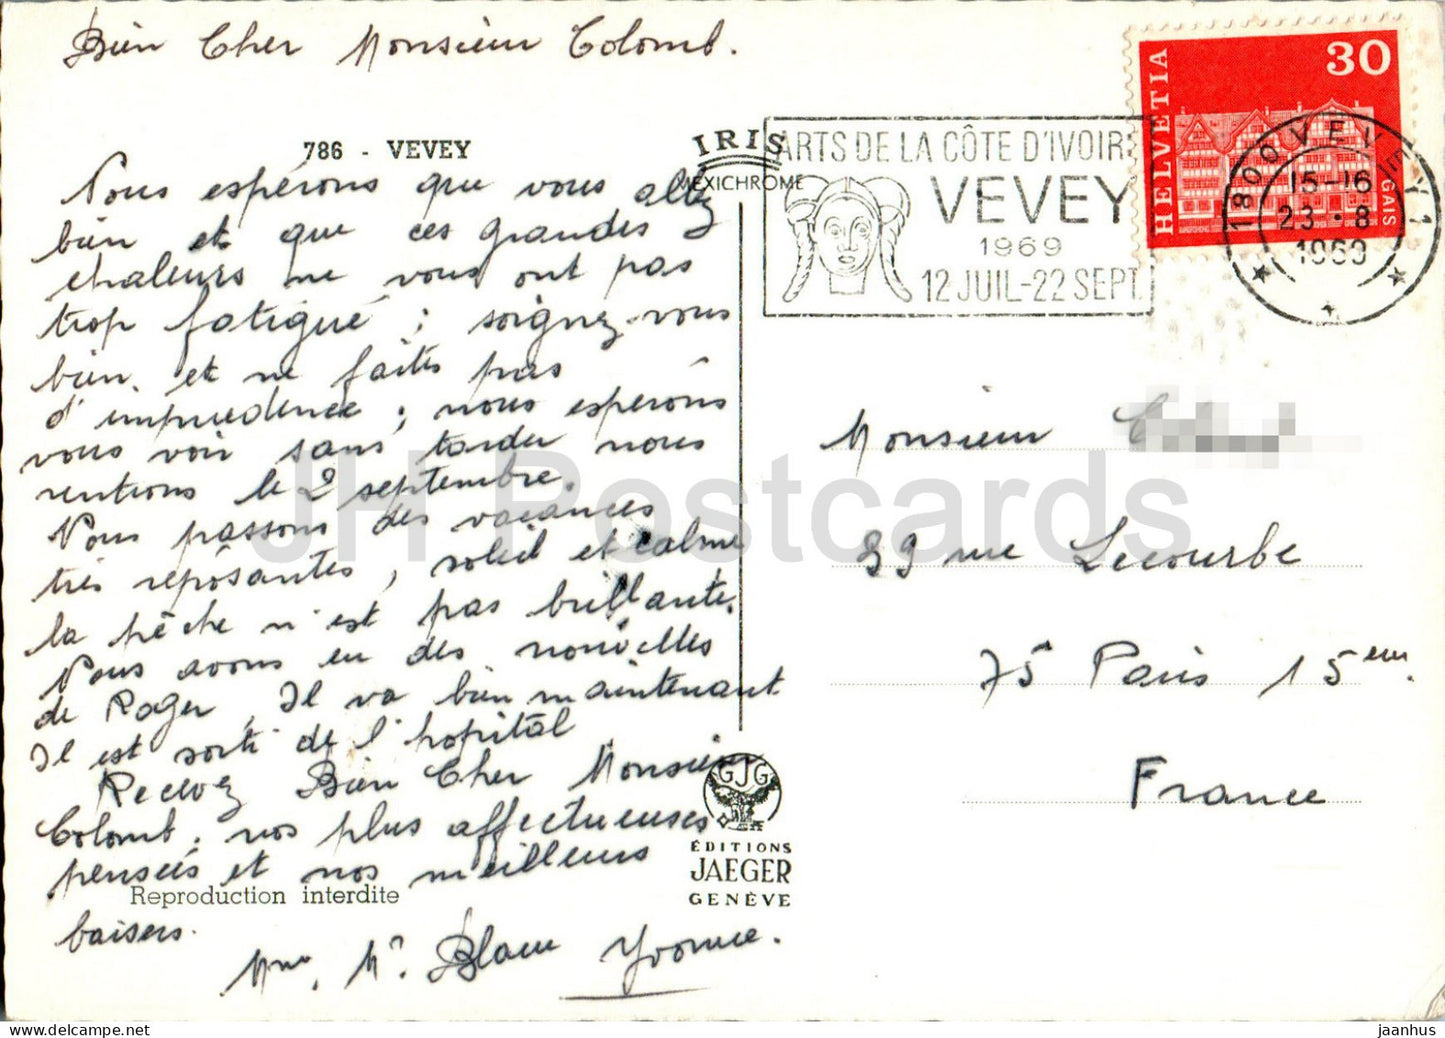 Bien Cher Monsieur Colomb.
786 - VEVEY
IRIS
MEXICHROME
Nous espérons que vous allez
bien et que ces grandes
chaleurs ne vous ont pas
trop fatigué ; soignez-vous
bien et ne faites pas
d'imprudence ; nous espérons
vous voir sans tarder nous
rentrons le 2 septembre.
Nous passons des vacances
très reposantes, soleil et calme
la pêche n'est pas brillante.
Nous avons eu des nouvelles
de Roger, Il va bien maintenant
Il est sorti de l'hopital
Recevez Bien Cher Monsieur
Colomb, nos plus affectueuses
pensées et nos meilleurs
baisers.
Mme, Mr. Blanc Yvonne.
Reproduction interdite
GJG
ÉDITIONS
JAEGER
GENÈVE
ARTS DE LA CÔTE D'IVOIRE
VEVEY
1969
12 JUIL-22 SEPT.
HELVETIA
30
GAIS
1800 VEVEY 1
15-16
23.-8
1969
Monsieur
99 rue Lecourbe
75 Paris 15em.
France
JH Postcards
jaanhus